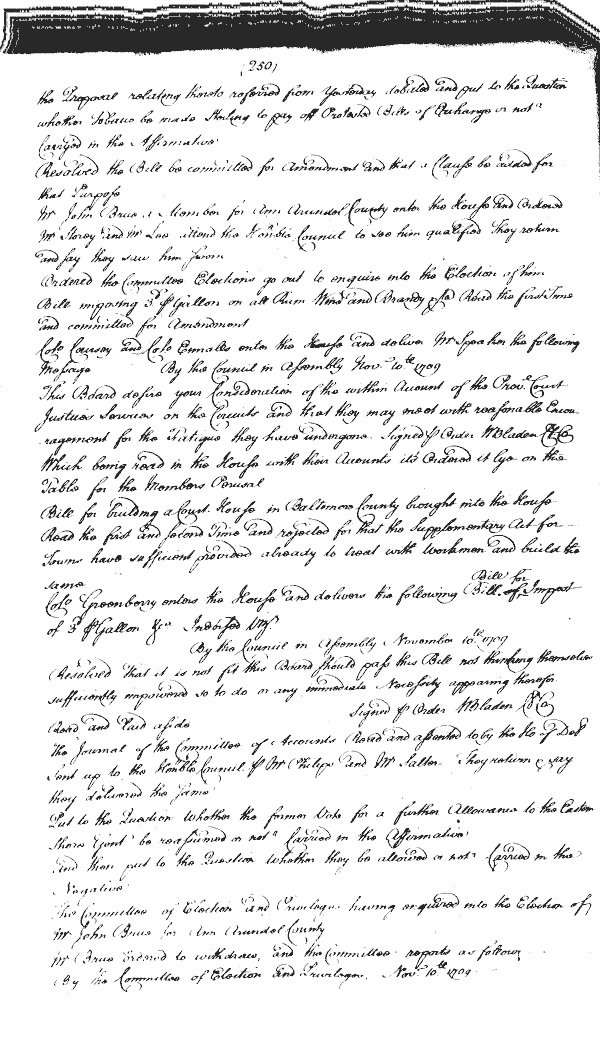 (250)
the Proposal relating thereto referred from Yesterday debated and put to the Question
whether Tobacco be made Sterling to pay off Protested Bills of Exchange or not?
Carryed in the Affirmative
Resolved the Bill be committed for Amendment and that a Clause be added for
that Purpose
Mr John Brue a Member for Ann Arundel County enter the House and Ordered
Mr Storey and Mr Lee attend the Honble Council to see him qualified They return
and say they saw him sworn
Ordered the Committee Elections go out to enquire into the Election of him
Bill imposing 3d ⅌ Gallon on all Rum Wine and Brandy &ca Read the first Time
and committed for Amendment
Colo Coursey and Colo Ennalls enter the House and deliver Mr Speaker the following
Message By the Council in Assembly Novr 10th 1709
This Board desire your Consideration of the within Account of the Provl Court
Justices Services on the Circuits and that they may meet with reasonable Encou
ragement for the Fatigue they have undergone. Signed ⅌ Order WBladen Cl Co
Which being read in the House with their Accounts its Ordered it lye on the
Table for the Members Perusal
Bill for building a Court House in Baltimore County brought into the House
Read the first and second Time and rejected for that the Supplementary Act for
Towns have sufficient provided already to treat with Workmen and build the
same
Bill for
Colo Greenberry enters the House and delivers the following Bill of Impost
of 3d ⅌ Gallon &ca Indorsed Vizt
By the Council in Assembly November 10th 1709
Resolved that it is not fit this Board should pass this Bill not thinking themselves
sufficiently empowered so to do or any immediate Necessity appearing therefor
Signed ⅌ Order WBladen Cl Co
Read and laid aside
The Journal of the Committee of Accounts Read and assented to by the Ho of Del
Sent up to the Honble Council ⅌ Mr Philips and Mr Salter. They return & say
they delivered the same
Put to the Question whether the former Vote for a further Allowance to the Eastern
Shore Gent be reassumed or not? Carried in the Affirmative
And then put to the Question whether they be allowed or not? Carried in the
Negative
The Committee of Election and Privileges having enquired into the Election of
Mr John Brue for Ann Arundel County
Mr Brue Ordered to withdraw, and the Committee reports as follows
By the Committee of Election and Privileges. Novr 10th 1709